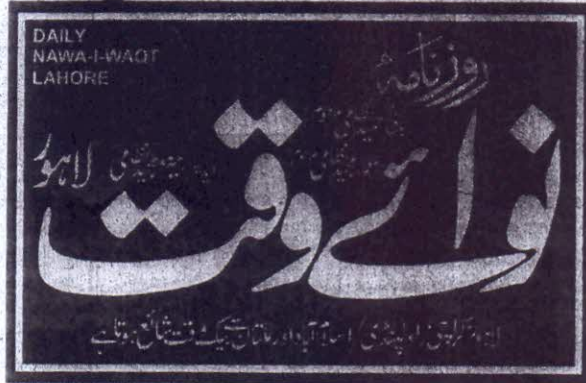 DAILY
NAWA-I-WAQT
LAHORE
روزنامہ
نوائے وقت
لاہور
لاہور، کراچی، راولپنڈی / اسلام آباد اور ملتان سے بیک وقت شائع ہوتا ہے